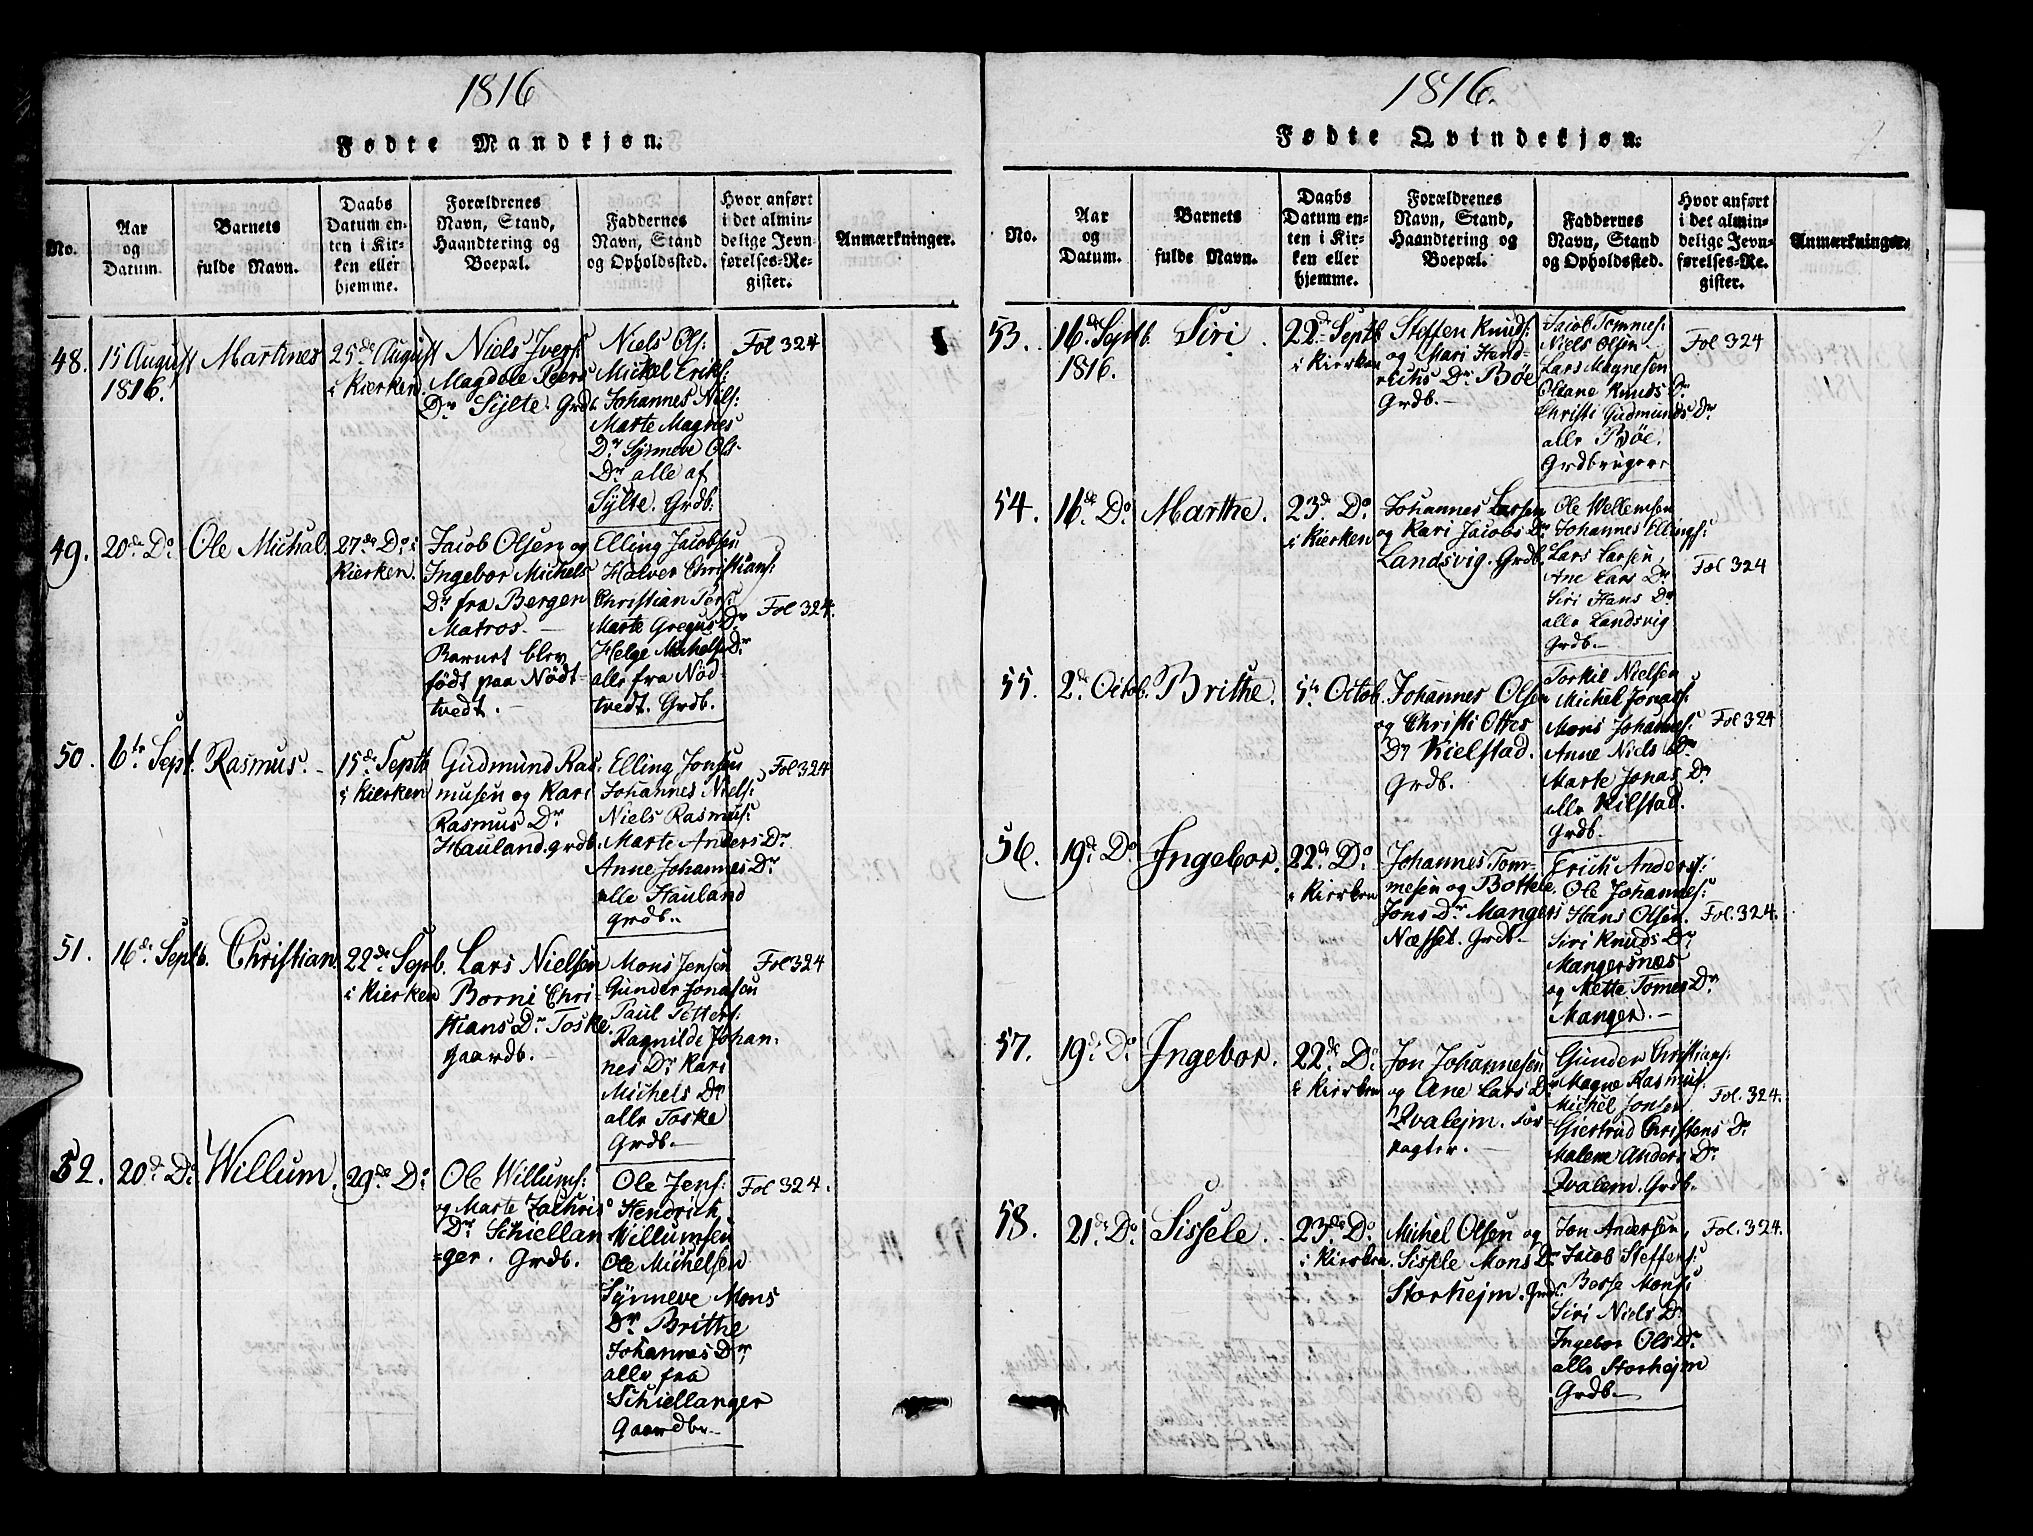 1816
Fødte Mandkjøn.
No.
Aar
og
Datum.
Barnets
fulde Navn.
Daabs
Datum en-
ten i Kir-
ken eller
hjemme.
Forældrenes
Navn, Stand,
Haandtering og
Boepæl.
Faddernes
Navn, Stand
og Opholdssted.
Hvor anført
i det almin-
delige Jevn-
førelses-Re-
gister.
Anmærkninger.
48.
15 August
1816.
Martines
25de August
i Kierken
Niels Ivers:
Magdele Peers
Dr Sylte. Grdb.
Niels Ols:
Mickel Eriks:
Johannes Nils:
Marte Magnes
Dr Synneve Ols
Dr alle af
Sylte. Grdb:
Fol 324
49.
20de Do
Ole Michal.
27de Do i
Kierken.
Jacob Olsen og
Ingebor Michels
Dr fra Bergen
Matros. —
Barnet blev
født paa Nødt-
tvedt. —
Elling Jacobsen
Halver Christians:
Christian Tors:
Marte Gregus Dr
Helge Michels Dr
alle fra Nød
tvedt. Grdb.
Fol 324.
50.
6te Sept.
Rasmus. —
15de Septb
i Kierken
Gudmund Ras-
musen og Kari
Rasmus Dr
Hauland. grdb.
Elling Jonsen
Johannes Niels:
Niels Rasmus:
Marte Anders Dr
Anne Johannes Dr
alle Hauland
grdb.
Fol 324
51.
16de Septb.
Christian
22de Sepb.
i Kierken
Lars Nielsen
Borni Chri-
stians Dr Toske.
gaardb. —
Mons Jensen
Gunder Jonasen
Paul Petters:
Ragnilde Johan-
nes Dr Kari
Michels Dr
alle Toske
Grdb. —
Fol 324
52.
20de Do
Willum.
29de Do
Ole Willums:
og Marte Zachris
Dr Schiellan
-ger. Grdb.
Ole Jens:
Hendrick
Willumsen
Ole Michelsen
Synneve Mons
Dr Brithe
Johannes Dr,
alle fra
Schiellanger
Gaardbr —
Fol 324.
1816.
Fødte Qvindekjøn.
No.
Aar
og
Datum.
Barnets
fulde Navn.
Daabs
Datum en-
ten i Kir-
ken eller
hjemme.
Forældrenes
Navn, Stand,
Haandtering og
Boepæl.
Faddernes
Navn, Stand
og Opholdssted.
Hvor anført
i det almin-
delige Jevn-
førelses-Re-
gister.
Anmærkninger.
53.
16de Septb.
1816.
Siri.
22de Septb
i Kierken
Steffen Knuds:
og Mari Hend-
richs Dr Bøe
Grdb. —
Jacob Tommes:
Niels Olsen
Lars Magnesen
Oliane Knuds Dr
Christi Gudmunds Dr
alle Bøe.
Grdbrugere
Fol 324
54.
16de Do
Marthe.
23de Do
i Kierken
Johannes Larsen
og Kari Jacobs Dr
Landsvig. Grdb.
Ole Wellemsen
Johannes Ellings:
Lars Larsen
Ane Lars Dr
Siri Hans Dr
alle Landsvig
Grdb. —
Fol 324
55.
2de Octob.
Brithe.
5te Octob.
Johannes Olsen
og Christi Ottes
Dr Kielstad.
Grdb.
Torkil Nielsen
Michel Jonas:
Mons Johannes:
Anne Niels Dr
Marte Jonas Dr
alle Kilstad.
Grdb. —
Fol 324
56.
19de Do
Ingebor.
22de Do
i Kierken
Johannes Tom-
mesen og Bottele
Jons Dr Mangers
Næsset. Grdb —
Erich Anders:
Ole Johannes:
Hans Olsen.
Siri Knuds Dr
Mangersnæs
og Mette Tomes Dr
Manger. —
Fol. 324.
57.
19de Do
Ingebor.
22de Do
i Kierken
Jon Johannesen
og Ane Lars Dr
Qvalejm. For-
pagter. —
Gunder Christians:
Magne Rasmus:
Michel Jonsen
Giertrud Christens Dr
Malene Anders Dr
Qvalem. Grdb.
Fol. 324.
58.
21de Do
Sissele.
23de Do
i Kierken.
Michel Olsen og
Sissele Mons Dr
Storhejm. Grdb.
Jon Andersen,
Jacob Steffens:
Børge Mons:
Siri Niels Dr
Ingebor Ols Dr
alle Storhejm
Grdb. —
Fol. 324.